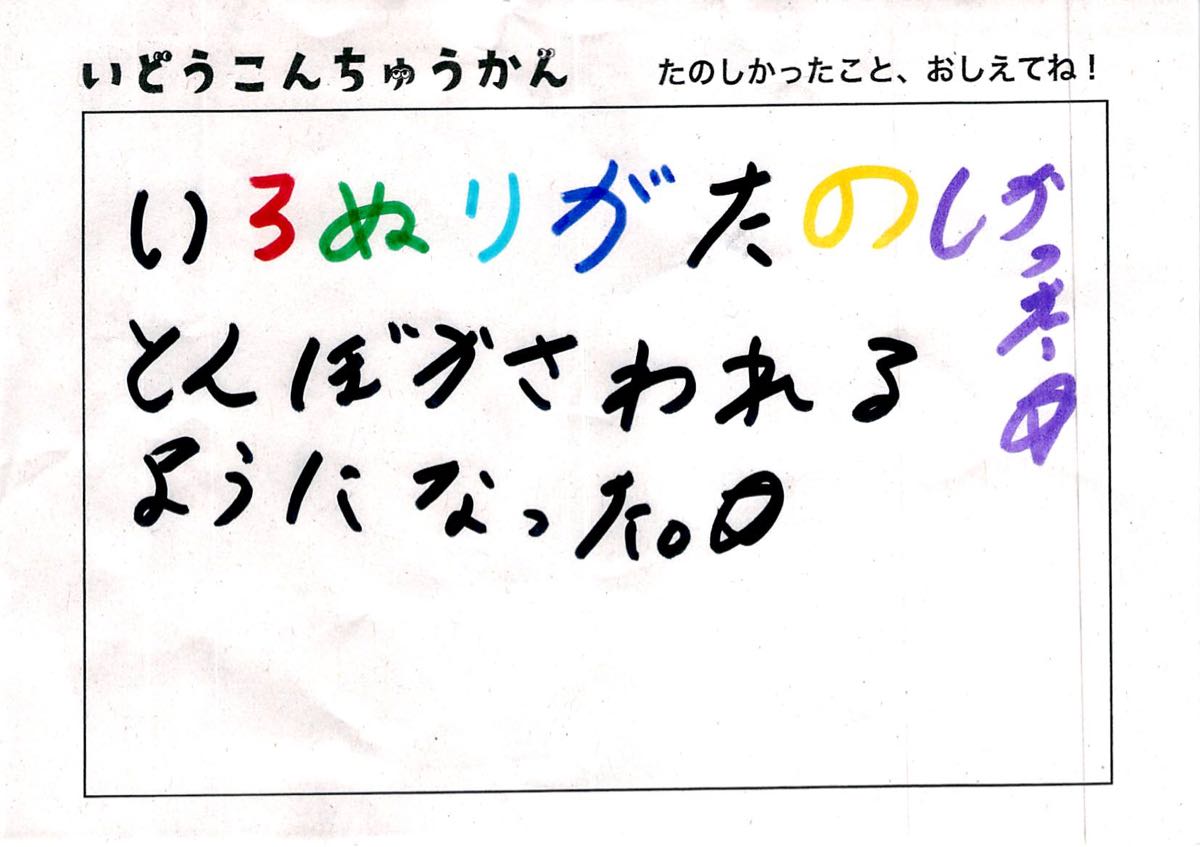 いどうこんちゅうかん
たのしかったこと、おしえてね！
いろぬりがたのしかった
とんぼがさわれる
ようになった。